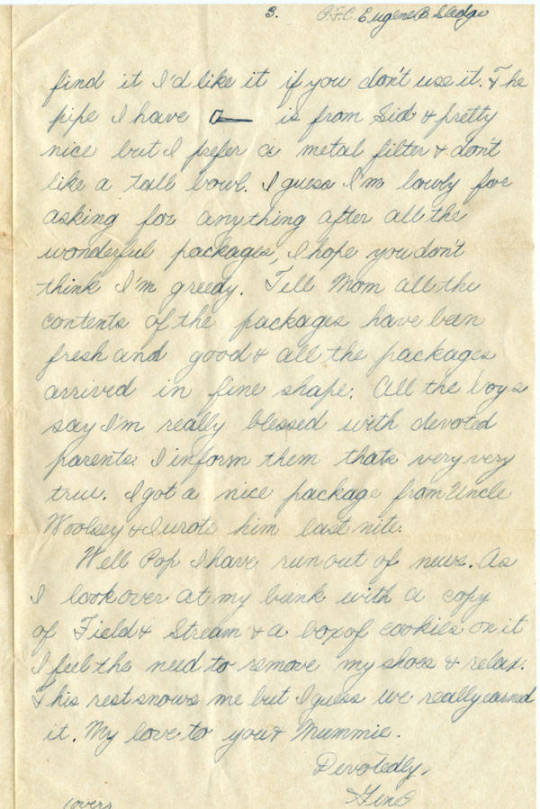 3. P.F.C. Eugene B. Sledge
find it I'd like it if you don't use it. The
pipe I have is from Sid & pretty
nice but I prefer a metal filter & don't
like a tall bowl. I guess I'm lowly for
asking for anything after all the
wonderful packages, I hope you don't
think I'm greedy. Tell Mom all the
contents of the packages have been
fresh and good & all the packages
arrived in fine shape. All the boys
say I'm really blessed with devoted
parents. I inform them thats very very
true. I got a nice package from Uncle
Woolsey & I wrote him last nite.
Well Pop I have run out of news. As
I look over at my bunk with a copy
of Field & Stream & a box of cookies on it
I feel the need to remove my shoes & relax.
This rest snows me but I guess we really earned
it. My love to you & Mummie.
Devotedly,
Gene
(over)